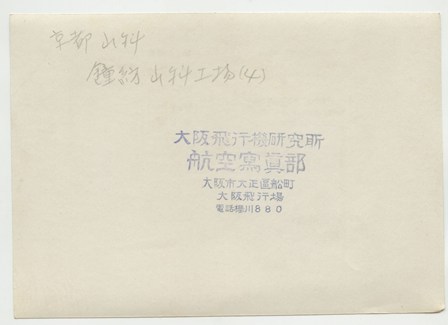 京都 山科
鐘紡山科工場(4)
大阪飛行機研究所
航空寫眞部
大阪市大正區船町
大阪飛行場
電話櫻川880